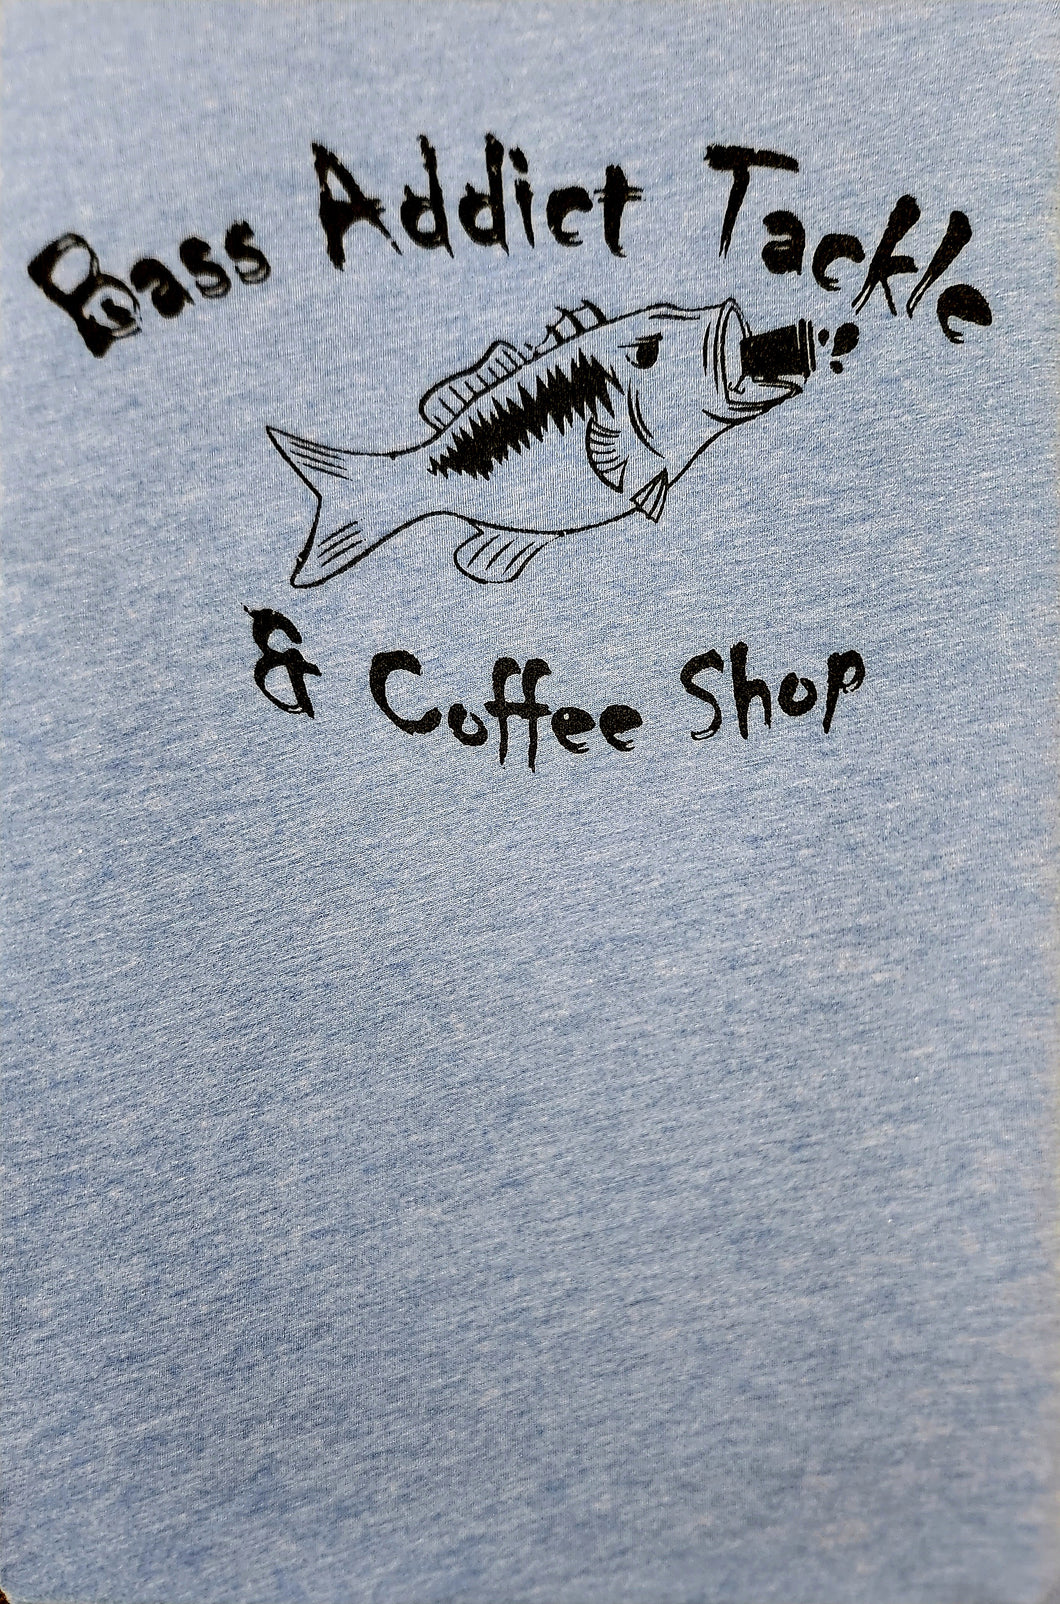 Bass Addict Tackle
& Coffee Shop